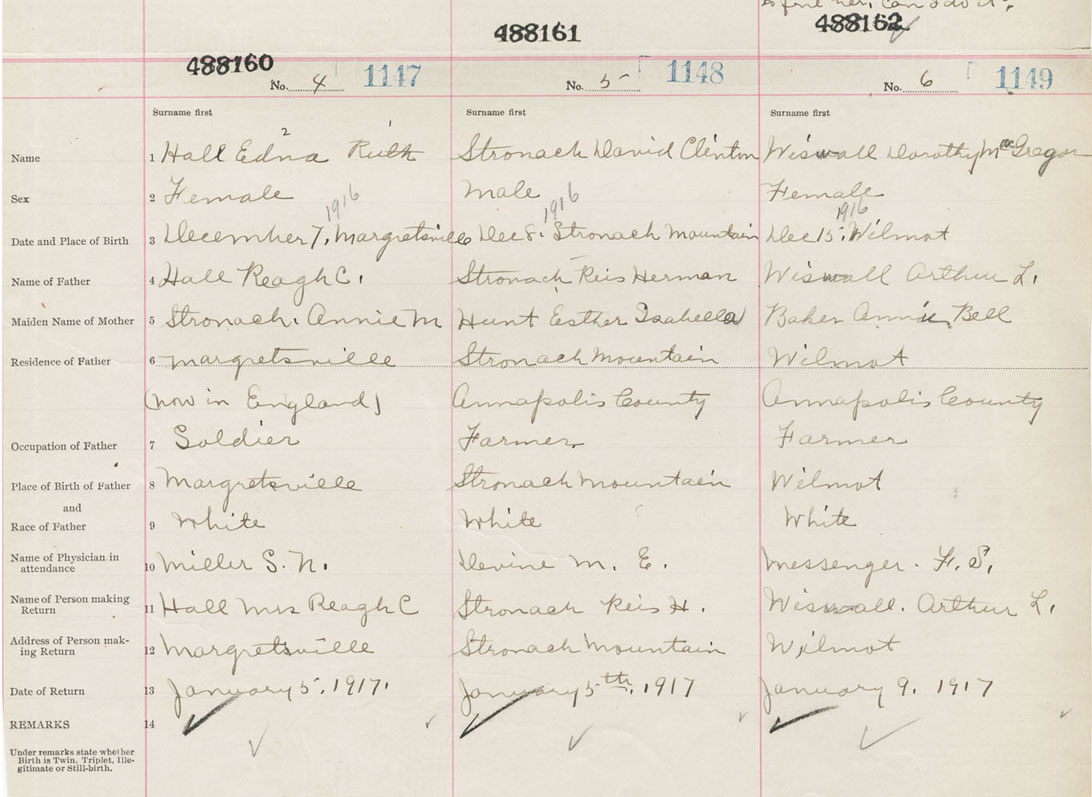 488160 488161 488162
No. 4 1147 No. 5 1148 No. 6 1149
Surname first Surname first Surname first
2
Name 1 Hall Edna Ruth Stronach David Clinton Wiswall Dorothy McGregor
Sex 2 Female Male Female
1916 1916 1916
Date and Place of Birth 3 December 7, Margretsville Dec 8. Stronach Mountain Dec 15. Wilmot
Name of Father 4 Hall Reagh C. Stronach Reis Herman Wiswall Arthur L.
Maiden Name of Mother 5 Stronach. Annie M Hunt Esther Isabella Baker Annie Bell
Residence of Father 6 Margretsville Stronach Mountain Wilmot
(now in England) Annapolis County Annapolis County
Occupation of Father 7 Soldier Farmer Farmer
Place of Birth of Father 8 Margretsville Stronach Mountain Wilmot
and
Race of Father 9 White White White
Name of Physician in
attendance 10 Miller S. N. Devine M. E. Messenger. F. S.
Name of Person making
Return 11 Hall Mrs Reagh C Stronach Reis H. Wiswall. Arthur L.
Address of Person mak-
ing Return 12 Margretsville Stronach Mountain Wilmot
Date of Return 13 January 5, 1917. January 5th, 1917 January 9, 1917
REMARKS 14
Under remarks state whether
Birth is Twin, Triplet, Ille-
gitimate or Still-birth.